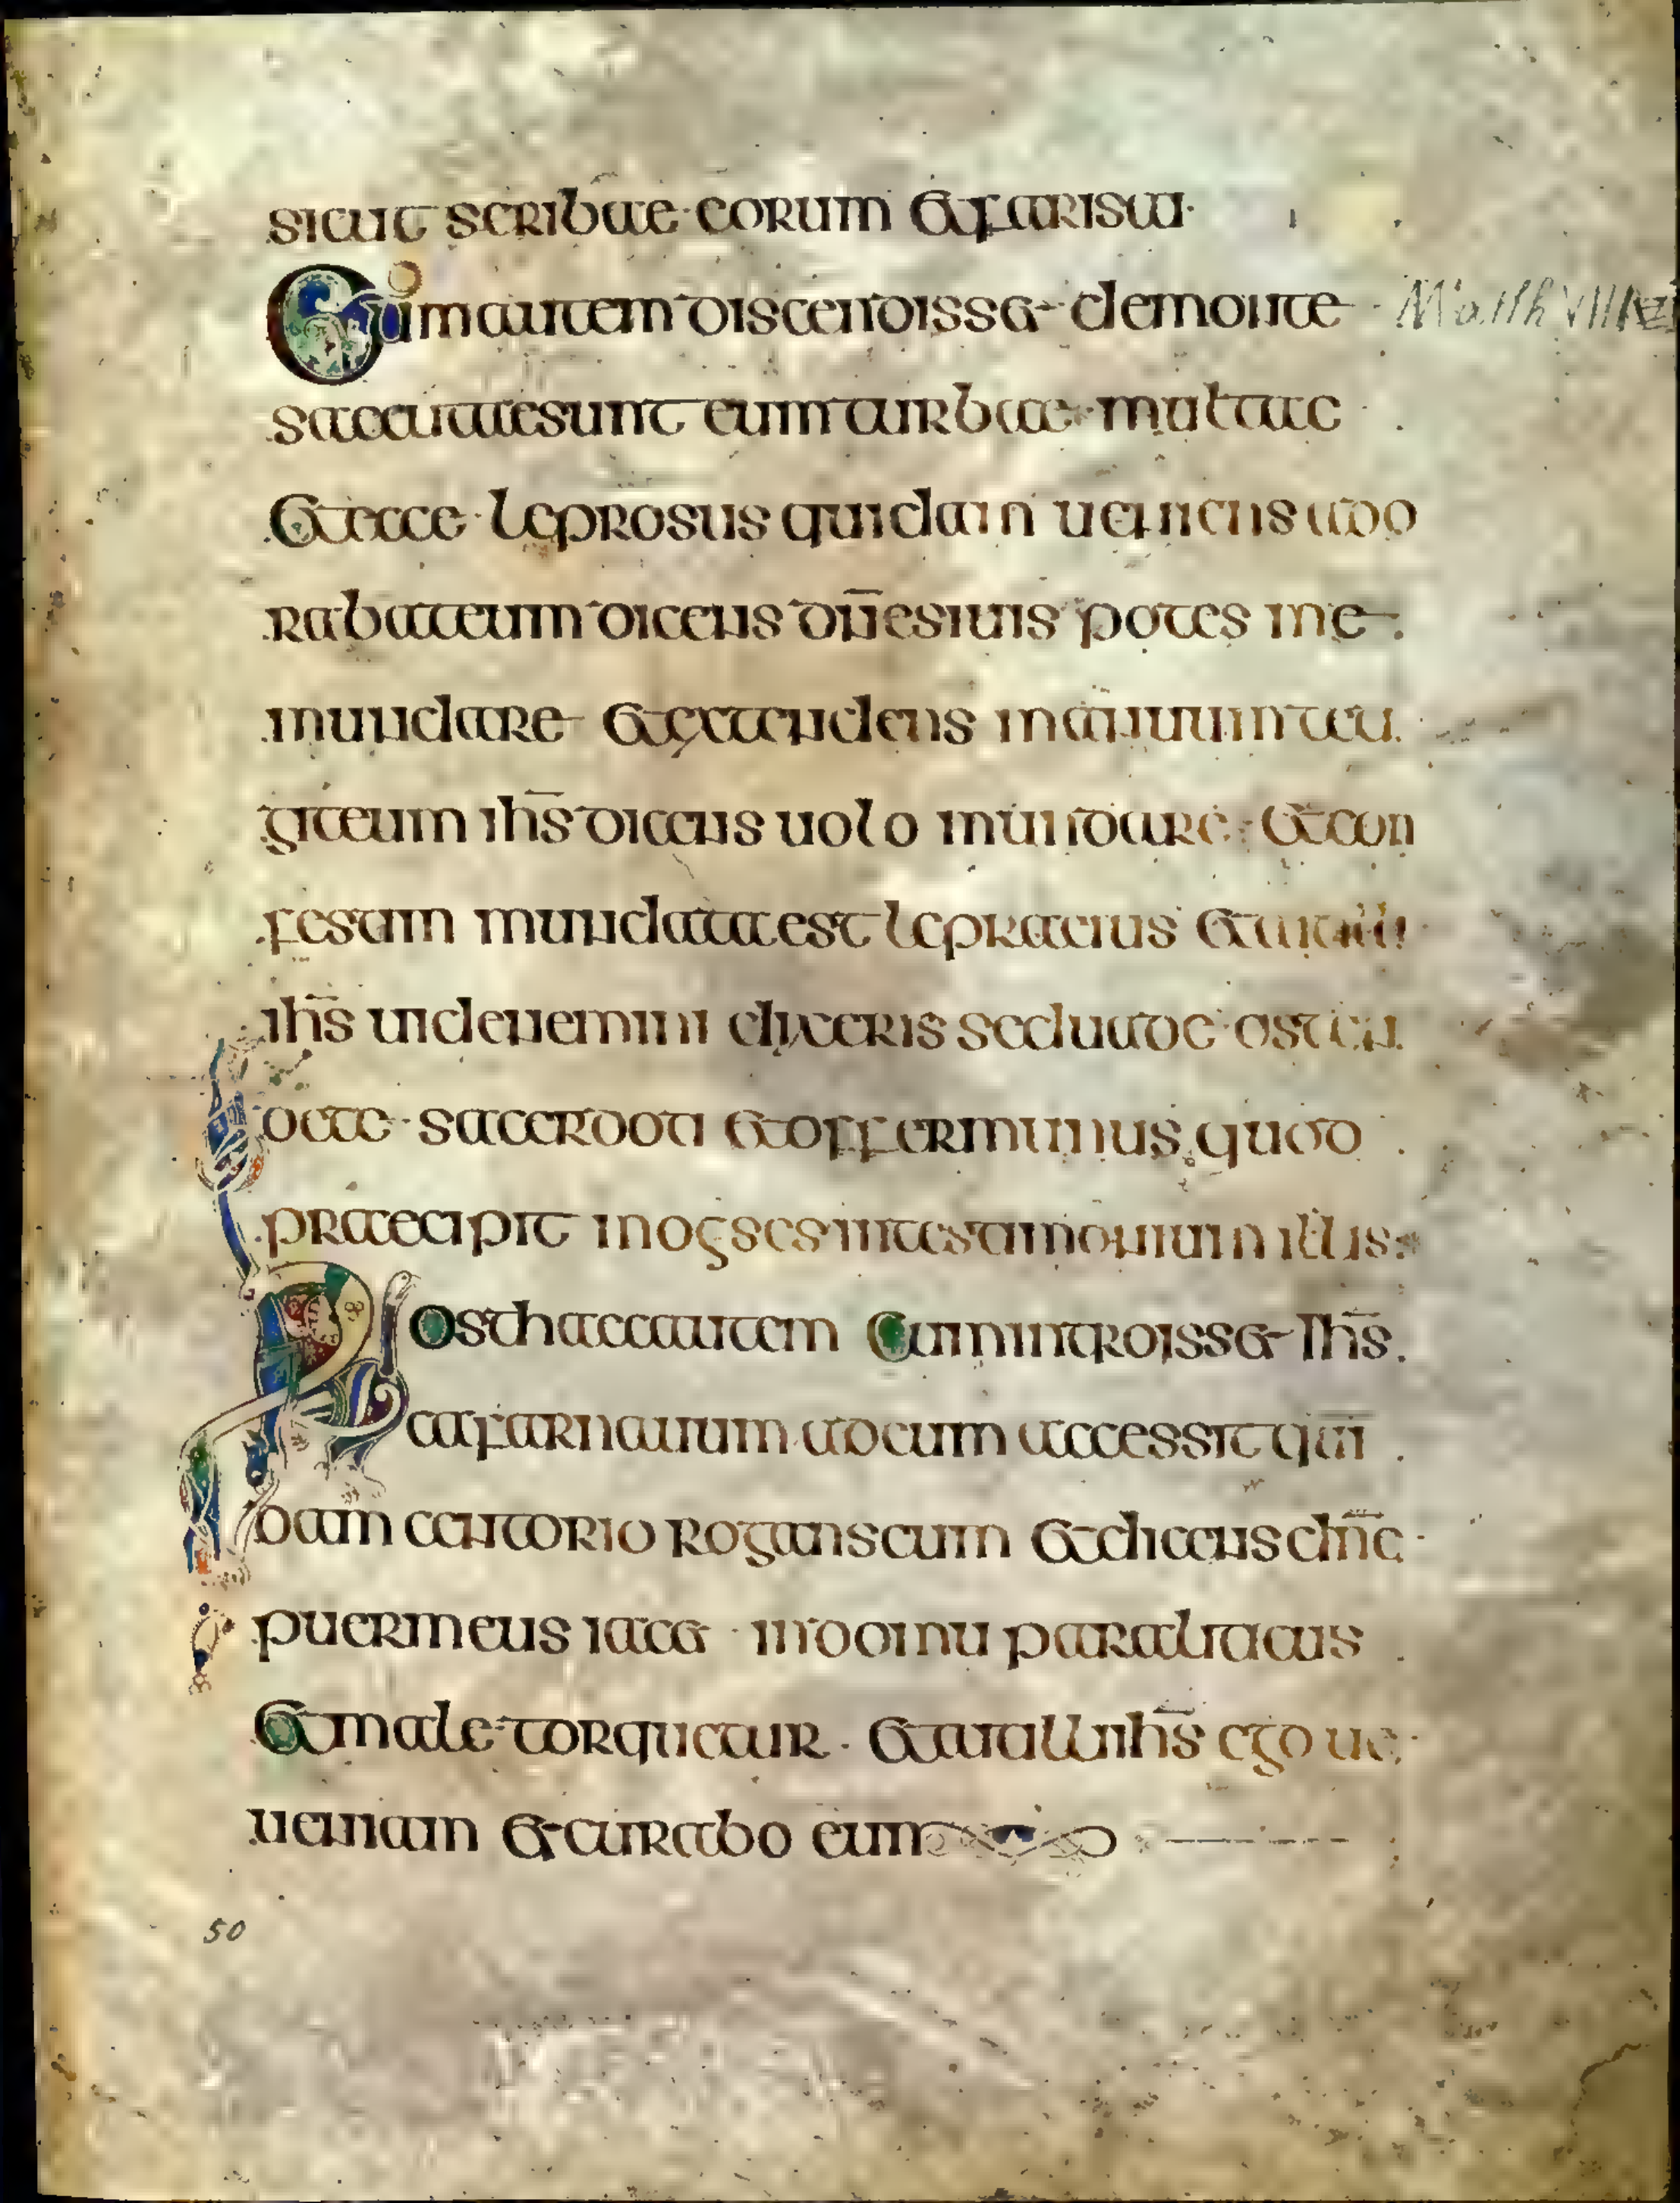 sicut scribae eorum et farisaei
Cum autem discendisset de monte Matth VIII
saecutae sunt eum turbae multae
Et ecce leprosus quidam ueniens ado
rabat eum dicens dn̄e si uis potes me
mundare et extendens manum teti
git eum ihs̄ dicens uolo mundare et con
fesam mundata est lepra eius et ait illi
ihs̄ uide nemini dixeris sed uade osten
de te sacerdoti et offer munus quod
praecipit moyses in testimonium illis
Post haec autem cum introisset Ihs̄
cafarnauum ad eum accessit qui
dam centorio rogans eum et dicens dn̄e
puer meus iacet in domu paraliticus
Et male torquetur. Et ait illi ihs̄ ego ue
ueniam et curabo eum
50